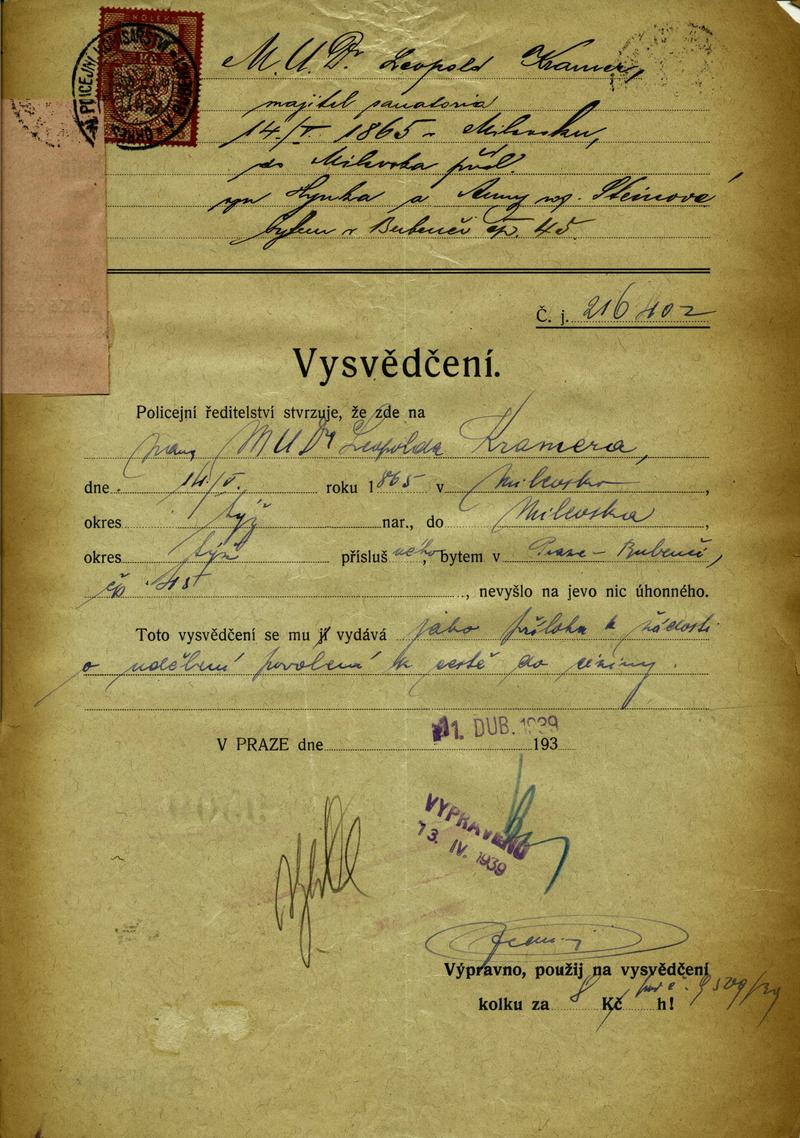 KOLEK
M.U.Dr Leopold Kramer,
majitel sanatoria
14./V. 1865 - Milevsku,
do Milevska přísl.
syn Hynka a Anny roz. Steinové
bytem v Bubenči čp. 45.
Č. j. 216402
Vysvědčení.
Policejní ředitelství stvrzuje, že zde na
pana MUDr Leopolda Kramera,
dne 14./V. roku 1865 v Milevsko,
okres týž nar., do Milevska,
okres týž přísluš ného, bytem v Praze - Bubenči,
čp 45, nevyšlo na jevo nic úhonného.
Toto vysvědčení se mu jí vydává jako příloha k žádosti
o udělení povolení k cestě do ciziny.
V PRAZE dne 11. DUB. 1939 193
VYPRAVENO
13. IV. 1939
Výpravno, použij na vysvědčení
kolku za 8 Kč h!